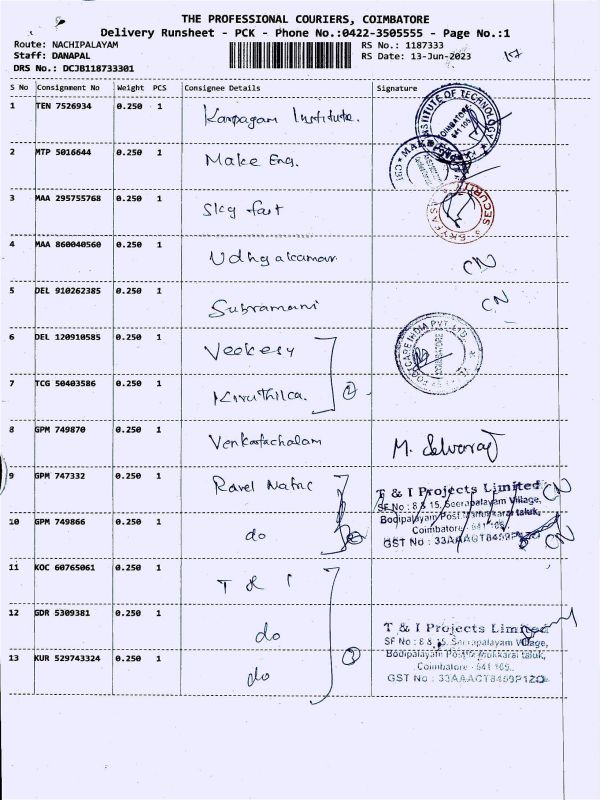 THE PROFESSIONAL COURIERS, COIMBATORE
Delivery Runsheet - PCK - Phone No.:0422-3505555 - Page No.:1
Route: NACHIPALAYAM
Staff: DANAPAL
DRS No.: DCJB118733301
RS No.: 1187333
RS Date: 13-Jun-2023
S No Consignment No Weight PCS Consignee Details Signature
1 TEN 7526934 0.250 1 Karpagam Institute.
INSTITUTE OF TECHNOLOGY
COIMBATORE
641 105
2 MTP 5016644 0.250 1 Make Eng.
3 MAA 295755768 0.250 1 Sky fast
4 MAA 860040560 0.250 1 Udhyakumar CN
5 DEL 910262385 0.250 1 Subramani CN
6 DEL 120910585 0.250 1
FOOTCARE INDIA PVT. LTD.
COIMBATORE
7 TCG 50403586 0.250 1 Kiruthika. 2
8 GPM 749870 0.250 1 Venkatachalam M. Selvaraj
9 GPM 747332 0.250 1 CN
T & I Projects Limited
SF No : 8 & 15, Seerapalayam Village,
Bodipalayam Post, Madukkarai taluk,
Coimbatore - 641 105.
GST No : 33AAACT8459P1ZO
10 GPM 749866 0.250 1 do CN
11 KOC 60765061 0.250 1 T & I
12 GDR 5309381 0.250 1 do
T & I Projects Limited
SF No : 8 & 15, Seerapalayam Village,
Bodipalayam Post, Madukkarai taluk,
Coimbatore - 641 105.
GST No : 33AAACT8459P1ZO
13 KUR 529743324 0.250 1 do 3